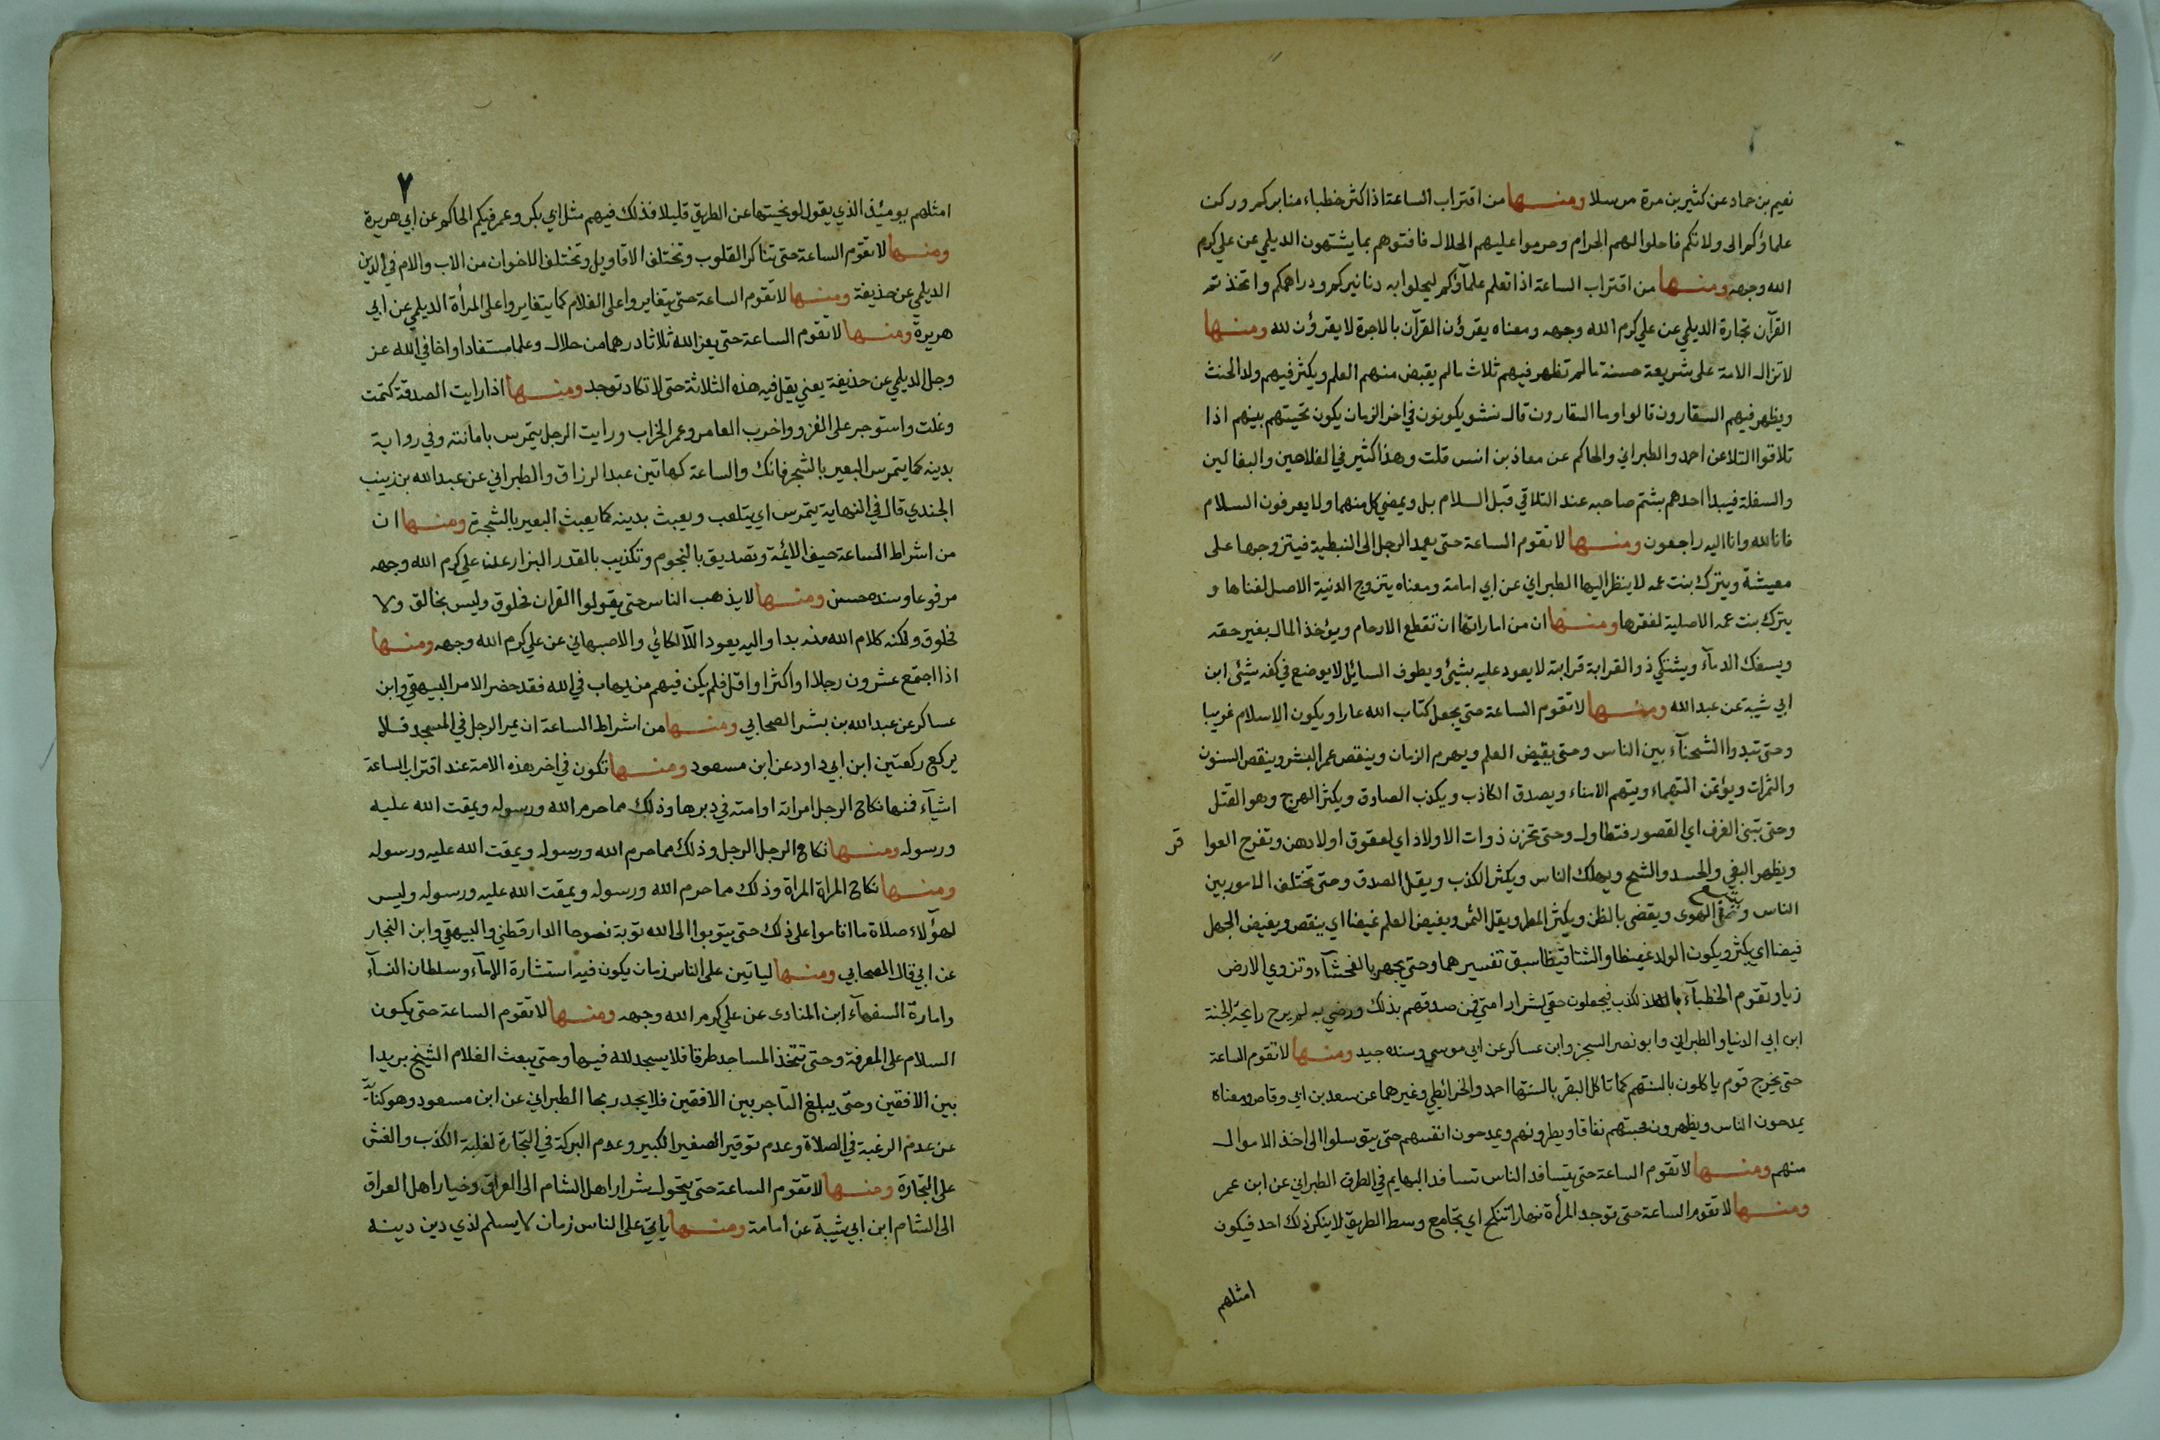 نعيم بن حماد عن كثير بن مرة مرسلا ومنها من اقتراب الساعة اذا كثر خطباء منابركم وركن
علماؤكم الى ولاتكم فاحلوا لهم الحرام وحرموا عليهم الحلال فافتوهم بما يشتهون الديلمي عن علي كرم
الله وجهه ومنها من اقتراب الساعة اذا تعلم علمآؤكم ليجلوا به دنانيركم ودراهمكم واتخذتم
القرآن تجارة الديلمي عن علي كرم الله وجهه ومعناه يقرؤن القرآن بالاجرة لا يقرؤن لله ومنها
لا تزال الامة على شريعة حسنة مالم تظهر فيهم ثلاث مالم يقبض منهم العلم ويكثر فيهم ولد الحنث
ويظهر فيهم السقارون قالوا وما السقارون قال نشو يكونون في اخر الزمان يكون تحيتهم بينهم اذا
تلاقوا التلاعن احمد والطبراني والحاكم عن معاذ بن انس قلت وهذا كثير في الفلاحين والبغالين
والسفلة فيبدا احدهم بشتم صاحبه عند التلاقي قبل السلام بل ويمضي كل منهما ولا يعرفون السلام
فانا لله وانا اليه راجعون ومنها لا تقوم الساعة حتى يعمد الرجل الى النبطية فيتزوجها على
معيشة ويترك بنت عمه لا ينظر اليها الطبراني عن ابي امامة ومعناه يتزوج الدنية الاصل لغناها و
يترك بنت عمه الاصلية لفقرها ومنها ان من اماراتها ان تقطع الارحام ويؤخذ المال بغير حقه
ويسفك الدمآء ويشتكي ذو القرابة قرابة لا يعود عليه بشيئ ويطوف السايل لا يوضع في كفه شيئ ابن
ابي شيبة عن عبد الله ومنها لا تقوم الساعة حتى يجعل كتاب الله عارا ويكون الاسلام غريبا
وحتى تبدوا الشحنآء بين الناس وحتى يقبض العلم ويهرم الزمان وينقص عمر البشر وينقص السنون
والثمرات ويؤتمن التهماء ويتهم الامناء ويصدق الكاذب ويكذب الصادق ويكثر الهرج وهو القتل
وحتى تبنى الغرف اي القصور فتطاول وحتى تحزن ذوات الاولاد اي لعقوق اولادهن وتفرح العوا
قر
ويظهر البغي والحسد والشح ويهلك الناس ويكثر الكذب ويقل الصدق وحتى تختلف الامور بين
الناس ويتبع الهوى ويقضى بالظن ويكثر المطر ويقل الثمر ويغيض العلم غيضا اي ينقص ويفيض الجهل
فيضا اي يكثر ويكون الولد غيضا والشتا قيظا سبق تفسيرهما وحتى يجهر بالفحشآء وتزوي الارض
زيا وتقوم الخطبآء بالكذب فيجعلون حقي لشرار امتي فمن صدقهم بذلك ورضي به لم يرح رايحة الجنة
ابن ابي الدنيا والطبراني وابو نصر السجزي وابن عساكر عن ابي موسى وسنده جيد ومنها لا تقوم الساعة
حتى يخرج قوم ياكلون بالسنتهم كما تاكل البقر بالسنتها احمد والخرائطي وغيرهما عن سعد بن ابي وقاص ومعناه
يمدحون الناس ويظهرون محبتهم نفاقا ويطرونهم ويمدحون انفسهم حتى يتوسلوا الى اخذ الاموال
منهم ومنها لا تقوم الساعة حتى يتسافد الناس تسافد البهايم في الطرق الطبراني عن ابن عمر
ومنها لا تقوم الساعة حتى توجد المرأة نهارا تنكح اي تجامع وسط الطريق لا ينكر ذلك احد فيكون
امثلهم
٧
امثلهم يومئذ الذي يقول لو نحيتها عن الطريق قليلا فذلك فيهم مثل ابي بكر وعمر فيكم الحاكم عن ابي هريرة
ومنها لا تقوم الساعة حتى تتناكر القلوب وتختلف الاقاويل وتختلف الاخوان من الاب والام في الدين
الديلمي عن حذيفة ومنها لا تقوم الساعة حتى يتغايروا على الغلام كما يتغايروا على المرأة الديلمي عن ابي
هريرة ومنها لا تقوم الساعة حتى يعز الله ثلاثا درهما من حلال وعلما مستفادا واخا في الله عز
وجل الديلمي عن حذيفة يعني يقل فيه هذه الثلاثة حتى لا تكاد توجد ومنها اذا رايت الصدقة كتمت
وغلت واستوجر على الغزو واخرب العامر وعمر الخراب ورايت الرجل يتمرس بامانته وفي رواية
بدينه كما يتمرس البعير بالشجر فانك والساعة كهاتين عبد الرزاق والطبراني عن عبد الله بن زينب
الجندي قال في النهاية يتمرس اي يتلعب ويعبث بدينه كما يعبث البعير بالشجرة ومنها ان
من اشراط الساعة حيف الائمة وتصديق بالنجوم وتكذيب بالقدر البزار عن علي كرم الله وجهه
مرفوعا وسنده حسن ومنها لا يذهب الناس حتى يقولوا القران مخلوق وليس بخالق ولا
مخلوق ولكنه كلام الله منه بدا واليه يعود اللآلكائي والاصبهاني عن علي كرم الله وجهه ومنها
اذا اجتمع عشرون رجلا او اكثر او اقل فلم يكن فيهم من يهاب في الله فقد حضر الامر البيهقي وابن
عساكر عن عبد الله بن بشر الصحابي ومنها من اشراط الساعة ان يمر الرجل في المسجد فلا
يركع ركعتين ابن ابي داود عن ابن مسعود ومنها تكون في اخر هذه الامة عند اقتراب الساعة
اشيآء فمنها نكاح الرجل امراته او امته في دبرها وذلك مما حرم الله ورسوله ويمقت الله عليه
ورسوله ومنها نكاح الرجل الرجل وذلك مما حرم الله ورسوله ويمقت الله عليه ورسوله
ومنها نكاح المراة المراة وذلك مما حرم الله ورسوله ويمقت الله عليه ورسوله وليس
لهؤلاء صلاة ما اقاموا على ذلك حتى يتوبوا الى الله توبة نصوحا الدارقطني والبيهقي وابن النجار
عن ابي قال الصحابي ومنها لياتين على الناس زمان يكون فيه استشارة الامآء وسلطان النسآء
وامارة السفهآء ابن المنادى عن علي كرم الله وجهه ومنها لا تقوم الساعة حتى يكون
السلام على المعرفة وحتى تتخذ المساجد طرقا فلا يسجد لله فيها وحتى يبعث الغلام الشيخ بريدا
بين الافقين وحتى يبلغ التاجر بين الافقين فلا يجد ربحا الطبراني عن ابن مسعود وهو كناية
عن عدم الرغبة في الصلاة وعدم توقير الصغير الكبير وعدم البركة في التجارة لغلبة الكذب والغش
على التجارة ومنها لا تقوم الساعة حتى يتحول شرار اهل الشام الى العراق وخيار اهل العراق
الى الشام ابن ابي شيبة عن امامة ومنها ياتي على الناس زمان لا يسلم لذي دين دينه